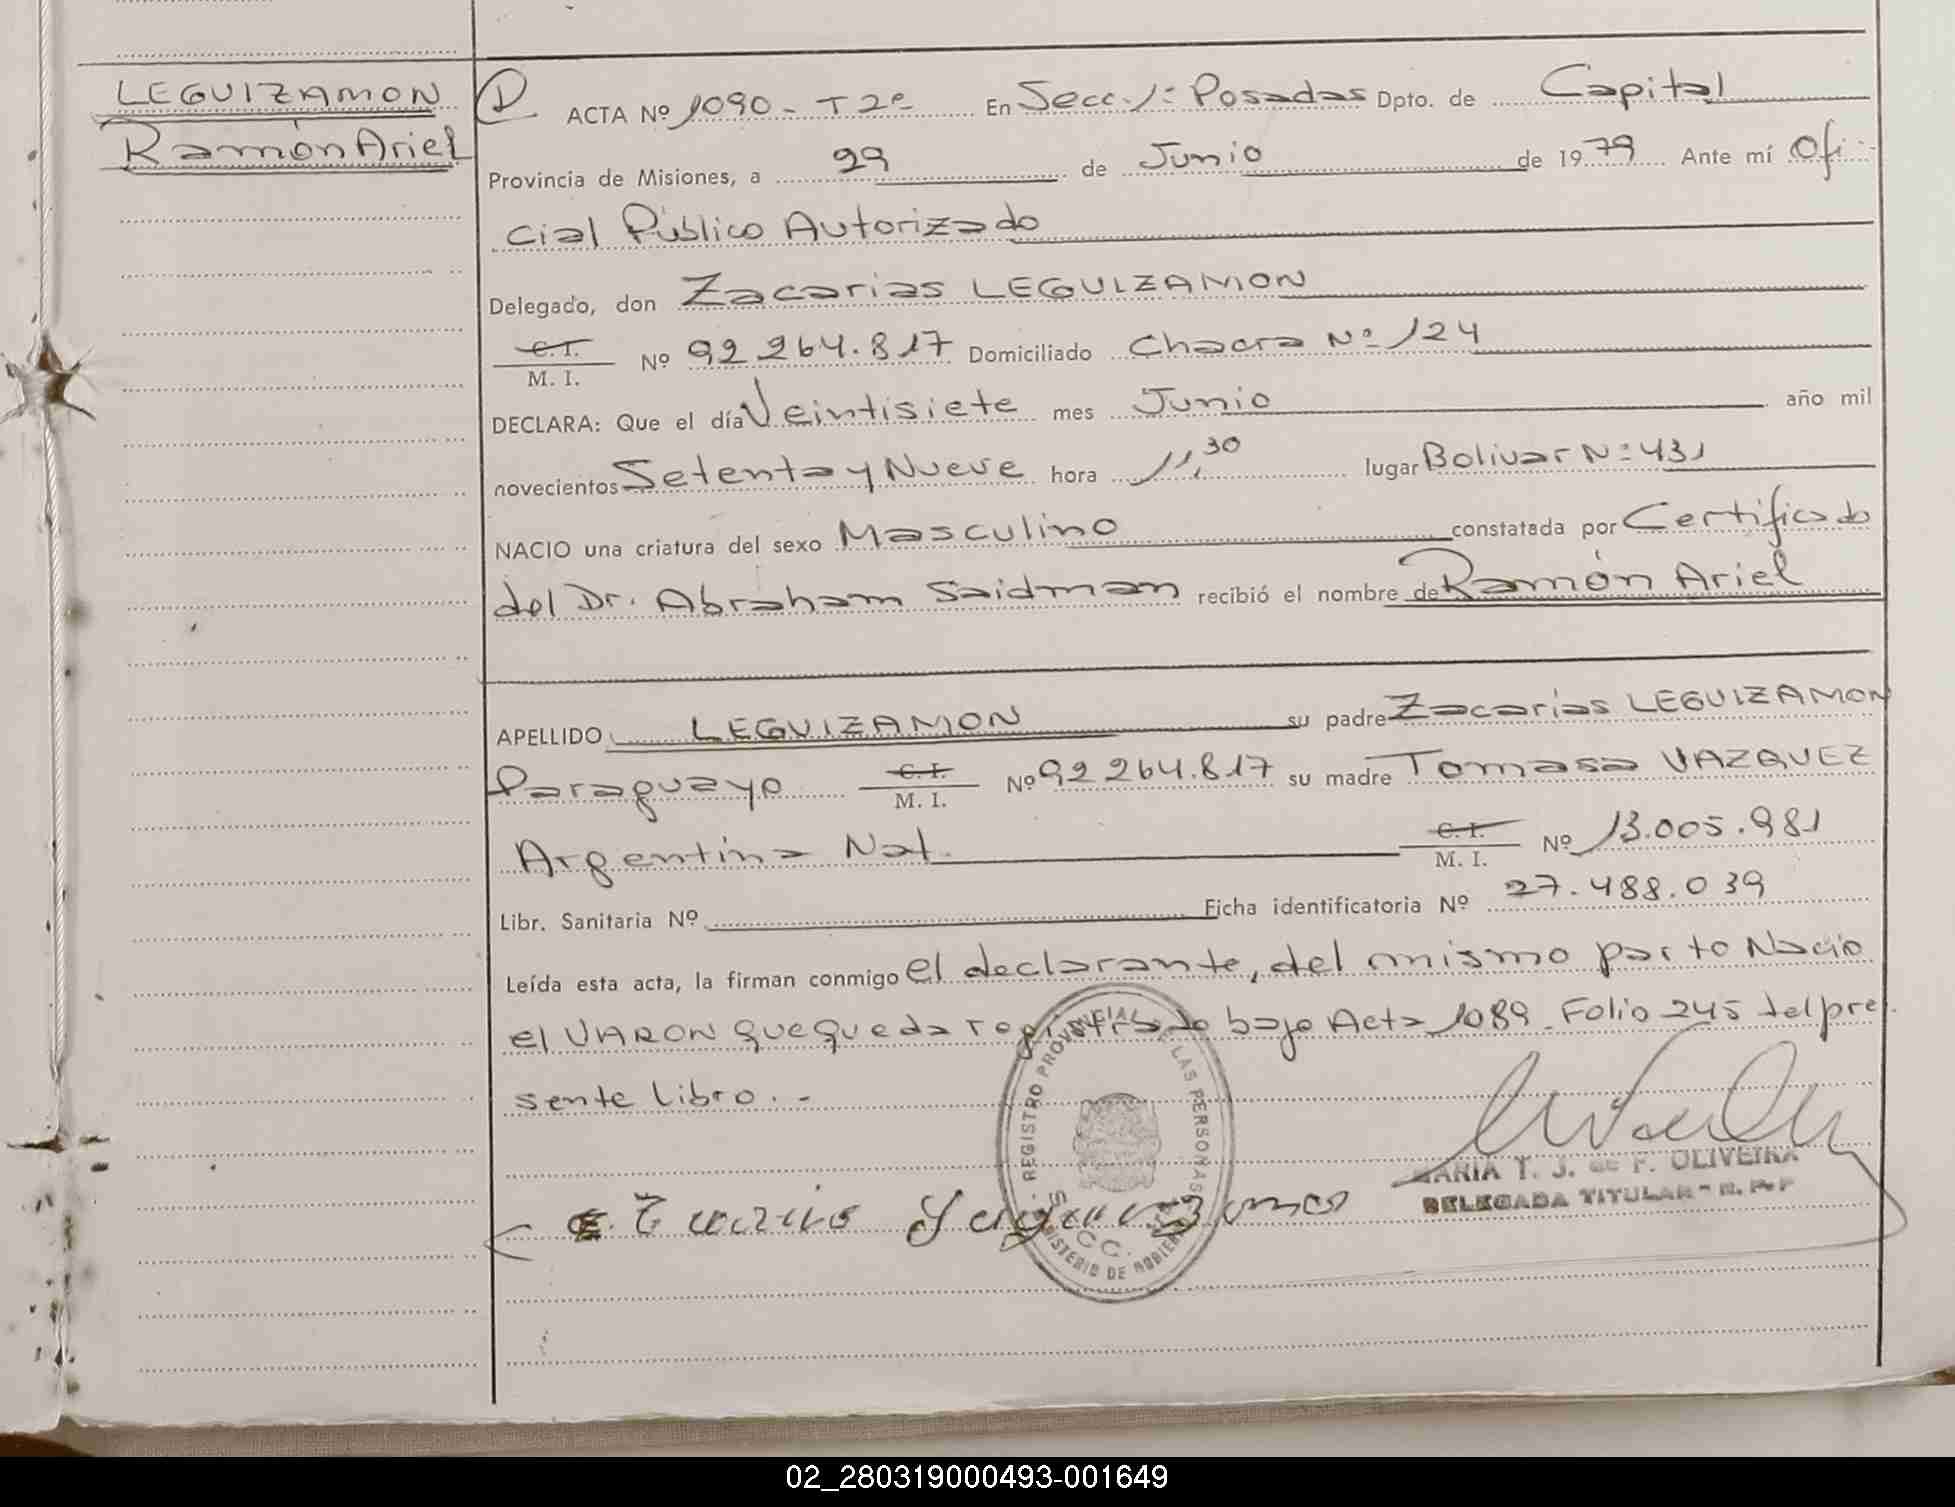 LEGUIZAMON
Ramón Ariel
ACTA Nº 1090 - T 2º En Secc. 1ª Posadas Dpto. de Capital
Provincia de Misiones, a 29 de Junio de 1979 Ante mí Ofi-
cial Público Autorizado
Delegado, don Zacarias LEGUIZAMON
C. I.
M. I. Nº 92 264.817 Domiciliado Chacra Nº 124
DECLARA: Que el día Veintisiete mes Junio año mil
novecientos Setenta y Nueve hora 11,30 lugar Bolivar Nº 431
NACIO una criatura del sexo Masculino constatada por Certificado
del Dr. Abraham Saidman recibió el nombre de Ramón Ariel
APELLIDO LEGUIZAMON su padre Zacarias LEGUIZAMON
Paraguayo C. I.
M. I. Nº 92 264.817 su madre Tomasa VAZQUEZ
Argentina Nat. C. I.
M. I. Nº 13.005.981
Libr. Sanitaria Nº Ficha identificatoria Nº 27.488.039
Leída esta acta, la firman conmigo el declarante, del mismo parto Nacio
el VARON que queda registrado bajo Acta 1089 - Folio 245 del pre
sente libro. -
REGISTRO PROVINCIAL DE LAS PERSONAS
MINISTERIO DE GOBIERNO
MARIA T. J. de F. OLIVEIRA
DELEGADA TITULAR - R. P. P
02_280319000493-001649